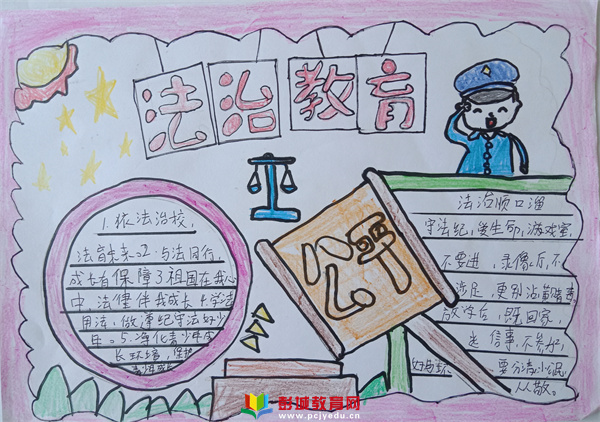 法治教育
1.依法治校,
法育未来。2.与法同行
成长有保障3祖国在我心
中,法律伴我成长4.学法
用法,做遵纪守法好少
年。5.净化青少年成
长环境,保护
青少年成长
公平
法治顺口溜
守法纪,爱生命,游戏室,
不要进,录像厅,不
涉足,更别沾黄赌毒
放学后,既回家,
事,不参加,
要分清
从散。
彭城教育网
www.pcjyedu.cn